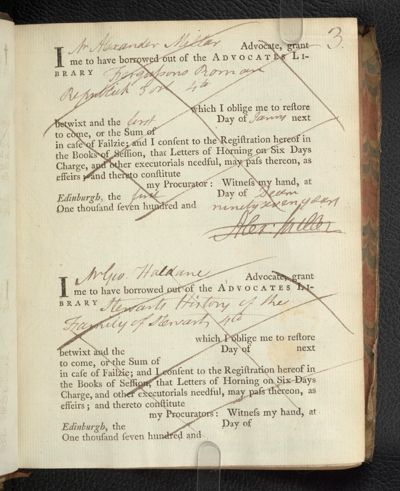 3.
I Mr Alexander Miller Advocate, grant
me to have borrowed out of the ADVOCATES LI-
BRARY Fergusons Roman
Republick 3 vol 4to
which I oblige me to reſtore
betwixt and the first Day of Janry next
to come, or the Sum of
in caſe of Failzie; and I conſent to the Regiſtration hereof in
the Books of Seſſion, that Letters of Horning on Six Days
Charge, and other executorials needful, may paſs thereon, as
effeirs; and thereto conſtitute
my Procurator: Witneſs my hand, at
Edinburgh, the first Day of Decem
One thouſand ſeven hundred and ninety seven years
Alex. Miller
I Mr Geo. Haldane Advocate, grant
me to have borrowed out of the ADVOCATES LI-
BRARY Stewarts History of the
Family of Stewart, 4to
which I oblige me to reſtore
betwixt and the Day of next
to come, or the Sum of
in caſe of Failzie; and I conſent to the Regiſtration hereof in
the Books of Seſſion, that Letters of Horning on Six Days
Charge, and other executorials needful, may paſs thereon, as
effeirs; and thereto conſtitute
my Procurators: Witneſs my hand, at
Edinburgh, the Day of
One thouſand ſeven hundred and